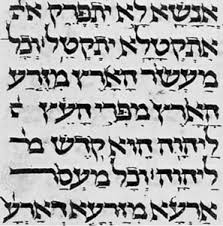 אנשא לא יתפרק את
אתקטלא יתקטל וכל
מעשר הארץ מזרע
הארץ מפרי העץ
ליהוה הוא קדש
ליהוה וכל מעסר
ארעא מזרעא דארעא